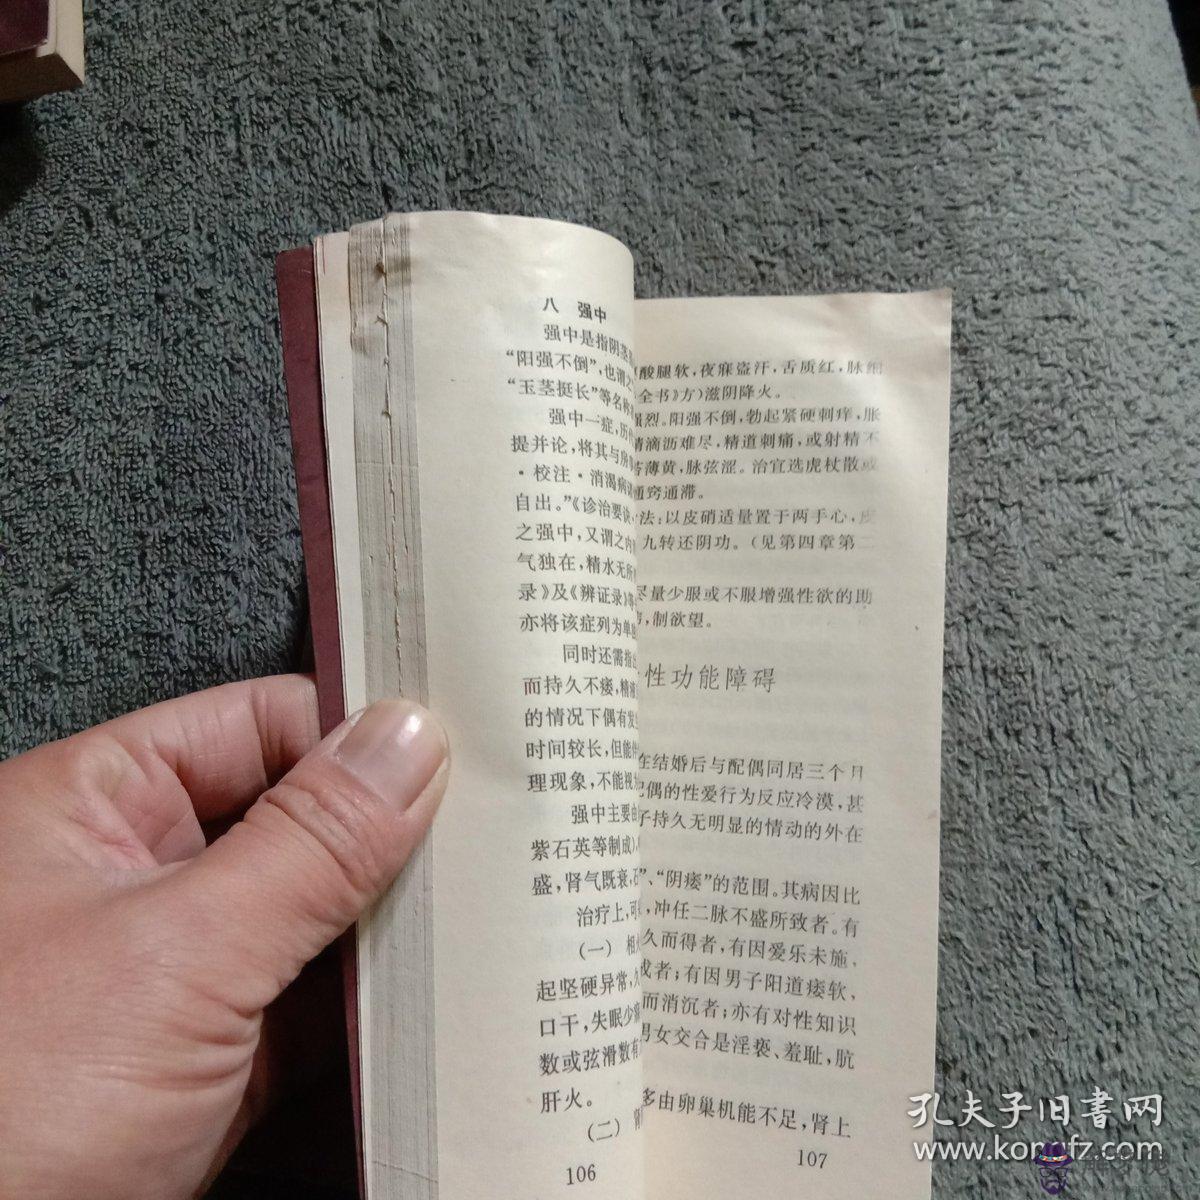 八 强中
强中是指阴茎
“阳强不倒”,也谓
“玉茎挺长”等名称
强中一症,历
提并论,将其与房
·校注·消渴病
自出。”《诊治要诀
之强中,又谓之内
气独在,精水无所
录》及《辨证录》等
亦将该症列为单
同时还需指
而持久不痿,精液
的情况下偶有发
时间较长,但能
理现象,不能视
强中主要由
紫石英等制成),
盛,肾气既衰,石
治疗上,可
(一) 相火
起坚硬异常,久
口干,失眠少寐
数或弦滑数有
肝火。
(二) 肾
106
酸腿软,夜寐盗汗,舌质红,脉细
全书》方)滋阴降火。
强烈。阳强不倒,勃起紧硬刺痒,胀
精滴沥难尽,精道刺痛,或射精不
苔薄黄,脉弦涩。治宜选虎杖散或
通窍通滞。
法:以皮硝适量置于两手心,皮
九转还阴功。(见第四章第二
尽量少服或不服增强性欲的助
,制欲望。
性功能障碍
在结婚后与配偶同居三个月
配偶的性爱行为反应冷漠,甚
子持久无明显的情动的外在
”、“阴痿”的范围。其病因比
,冲任二脉不盛所致者。有
久而得者,有因爱乐未施,
成者;有因男子阳道痿软,
而消沉者;亦有对性知识
男女交合是淫亵、羞耻,肮
多由卵巢机能不足,肾上
107
孔夫子旧书网
www.kongfz.com